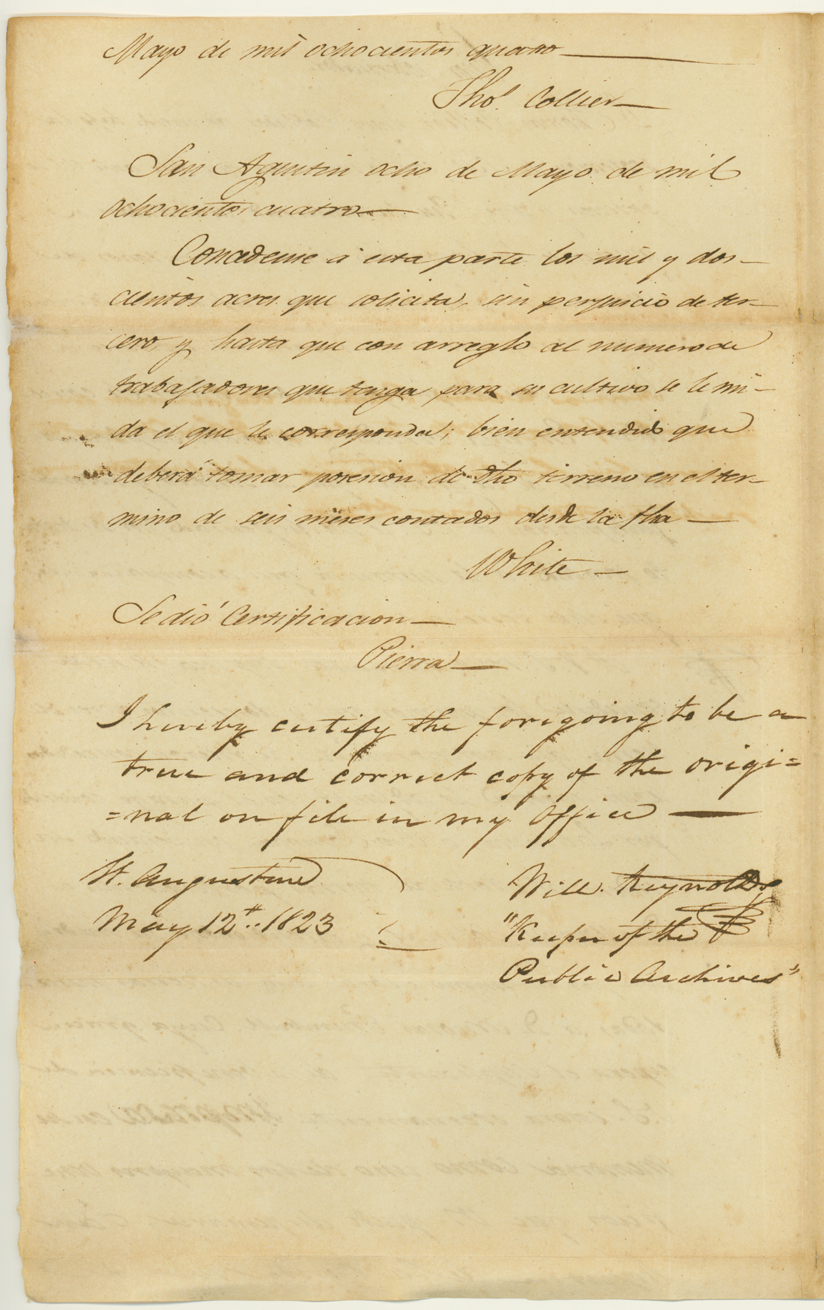 Mayo de mil ochocientos quatro
Thos. Collier
San Agustin ocho de Mayo de mil
ochocientos cuatro
Concedense á esta parte los mil y dos-
cientos acres que solicita, sin perjuicio de ter-
cero, y hasta que con arreglo al numero de
trabajadores que tenga para su cultivo se le mi-
da el que le corresponda; bien entendido que
deberá tomar posesion de dho terreno en el ter-
mino de seis meses contados desde la fha
White
Se dió Certificacion
Pierra
I hereby certify the foregoing to be a
true and correct copy of the origi=
=nal on file in my office
St. Augustine
May 12th. 1823
Will. Reynolds
"Keeper of the
Public Archives"